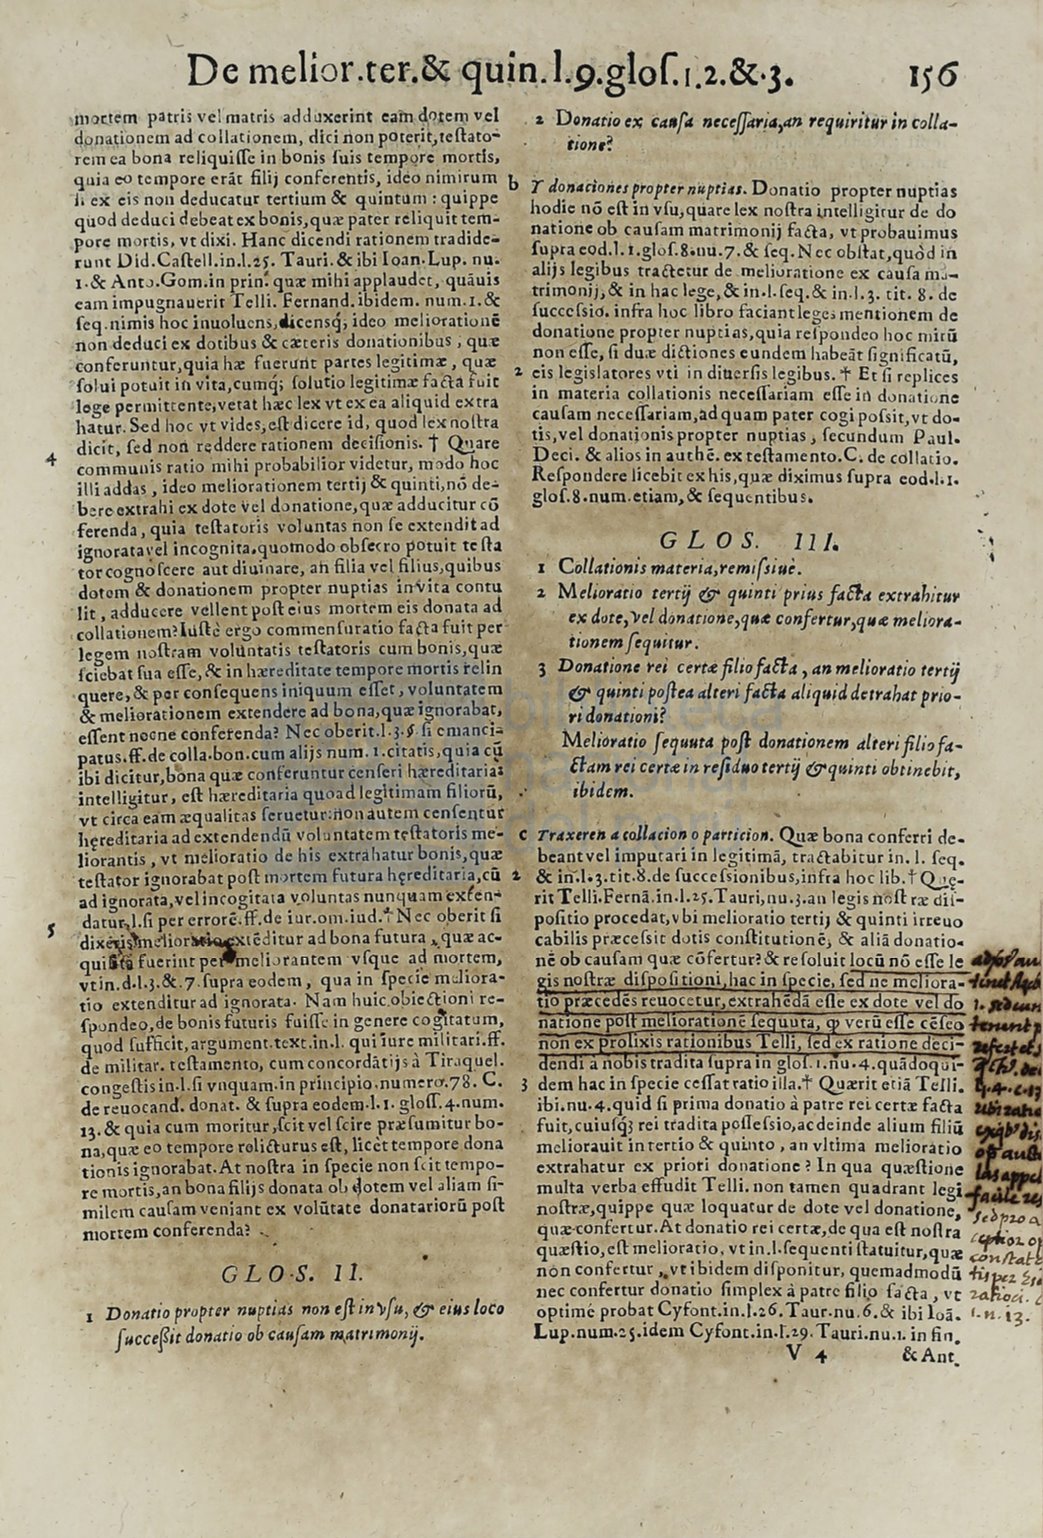 De melior.ter.& quin.l.9.glos.1.2.&.3. 156
mortem patris vel matris adduxerint eam dotem vel
donationem ad collationem, dici non poterit,testato-
rem ea bona reliquisse in bonis suis tempore mortis,
quia eo tempore erāt filij conferentis, ideo nimirum
si ex eis non deducatur tertium & quintum : quippe
quod deduci debeat ex bonis,quæ pater reliquit tem-
pore mortis, vt dixi. Hanc dicendi rationem tradide-
runt Did.Castell.in.l.25. Tauri.& ibi Ioan.Lup. nu.
1.& Anto.Gom.in prin. quæ mihi applaudet, quāuis
eam impugnauerit Telli. Fernand.ibidem. num.1.&
seq.nimis hoc inuoluens,dicensq́; ideo melioratinē
non deduci ex dotibus & cæteris donationibus , quæ
conferuntur,quia hæ fuerunt partes legitimæ, quæ
solui potuit in vita,cumq́; solutio legitimæ facta fuit
lege permittente,vetat hæc lex vt ex ea aliquid extra
hatur. Sed hoc vt vides,est dicere id, quod lex nostra
dicit, sed non reddere rationem decisionis. † Quare
4 communis ratio mihi probabilior videtur, modo hoc
illi addas , ideo meliorationem tertij & quinti,nō de-
bere extrahi ex dote vel donatione,quæ adducitur cō
ferenda, quia testatoris voluntas non se extendit ad
ignorata vel incognita.quomodo obsecro potuit testa
tor cognoscere aut diuinare, an filia vel filius,quibus
dotem & donationem propter nuptias in vita contu
lit , adducere vellent post eius mortem eis donata ad
collationem?Iustè ergo commensuratio facta fuit per
legem nostram voluntatis testatoris cum bonis,quæ
sciebat sua esse,& in hæreditate tempore mortis relin
quere,& per consequens iniquum esset, voluntatem
& meliorationem extendere ad bona,quæ ignorabat,
essent nocne conferenda? Nec oberit.l.3.§ si emanci-
patus.ff.de colla.bon.cum alijs num. 1.citatis,quia cū
ibi dicitur,bona quæ conferuntur censeri hæreditaria:
intelligitur, est hæreditaria quoad legitimam filiorū,
vt circa eam æqualitas seruetur:non autem censentur
hęreditaria ad extendendū voluntatem testatoris me-
liorantis , vt melioratio de his extrahatur bonis,quæ
testator ignorabat post mortem futura hęreditaria,cū
ad ignorata,vel incogitata voluntas nunquam exten-
datur,l.si per errorē.ff.de iur.om.iud.† Nec oberit si
5 dixeris melioratio extēditur ad bona futura , quæ ac-
quisita fuerint per meliorantem vsque ad mortem,
vt in.d.l.3.&.7.supra eodem, qua in specie meliora-
tio extenditur ad ignorata. Nam huic obiectioni re-
spondeo,de bonis futuris fuisse in genere cogitatum,
quod sufficit,argument.text.in.l. qui iure militari.ff.
de militar. testamento, cum concordātijs à Tiraquel.
congestis in.l.si vnquam.in principio.numero.78. C.
de reuocand. donat. & supra eodem.l.1. gloss.4.num.
13.& quia cum moritur,scit vel scire præsumitur bo-
na,quæ eo tempore relicturus est, licèt tempore dona
tionis ignorabat.At nostra in specie non scit tempo-
re mortis,an bona filijs donata ob dotem vel aliam si-
milem causam veniant ex volūtate donatariorū post
mortem conferenda?
GLOS. II.
1 Donatio propter nuptias non est in vsu, & eius loco
successit donatio ob causam matrimonij.
2 Donatio ex causa necessaria,an requiritur in colla-
tione?
b Y donaciones propter nuptias. Donatio propter nuptias
hodie nō est in vsu,quare lex nostra intelligitur de do
natione ob causam matrimonij facta, vt probauimus
supra eod.l.1.glos.8.nu.7.& seq.Nec obstat,quòd in
alijs legibus tractetur de melioratione ex causa ma-
trimonij,& in hac lege,& in.l.seq.& in.l.3. tit. 8. de
successio. infra hoc libro faciant leges mentionem de
donatione propter nuptias,quia respondeo hoc mirū
non esse, si duæ dictiones eundem habeāt significatū,
2 eis legislatores vti in diuersis legibus. † Et si replices
in materia collationis necessariam esse in donatione
causam necessariam,ad quam pater cogi possit,vt do-
tis,vel donationis propter nuptias, secundum Paul.
Deci. & alios in authē. ex testamento.C. de collatio.
Respondere licebit ex his,quæ diximus supra eod.l.1.
glos.8.num.etiam,& sequentibus.
GLOS. III.
1 Collationis materia,remissiue.
2 Melioratio tertij & quinti prius facta extrahitur
ex dote,vel donatione,quæ confertur,quæ meliora-
tionem sequitur.
3 Donatione rei certæ filio facta, an melioratio tertij
& quinti postea alteri facta aliquid detrahat prio-
ri donationi?
Melioratio sequuta post donationem alteri filio fa-
ctam rei certæ in residuo tertij & quinti obtinebit,
ibidem.
c Traxeren a collacion o particion. Quæ bona conferri de-
beant vel imputari in legitimā, tractabitur in. l. seq.
2 & in.l.3.tit.8.de successionibus,infra hoc lib.† Quę-
rit Telli.Fernā.in.l.25.Tauri,nu.3.an legis nostræ dis-
positio procedat,vbi melioratio tertij & quinti irreuo
cabilis præcessit dotis constitutionē, & aliā donatio-
nē ob causam quæ cōfertur?& resoluit locū nō esse le
gis nostræ dispositioni,hac in specie, sed ne meliora-
tio præcedēs reuocetur,extrahēdā esse ex dote vel do
natione post meliorationē sequuta, qđ verū esse cēseo
non ex prolixis rationibus Telli, sed ex ratione deci-
dendi à nobis tradita supra in glos.1.nu.4.quādoqui-
3 dem hac in specie cessat ratio illa.† Quærit etiā Telli.
ibi.nu.4.quid si prima donatio à patre rei certæ facta
fuit,cuiusq́; rei tradita possessio,ac deinde alium filiū
meliorauit in tertio & quinto , an vltima melioratio
extrahatur ex priori donatione? In qua quæstione
multa verba effudit Telli. non tamen quadrant legi
nostræ,quippe quæ loquatur de dote vel donatione,
quæ confertur.At donatio rei certæ,de qua est nostra
quæstio,est melioratio, vt in.l.sequenti statuitur,quæ
non confertur , vt ibidem disponitur, quemadmodū
nec confertur donatio simplex à patre filio facta, vt
optimè probat Cyfont.in.l.26.Taur.nu.6.& ibi Ioā.
Lup.num.25.idem Cyfont.in.l.29.Tauri.nu.1. in fin.
V 4 & Ant.